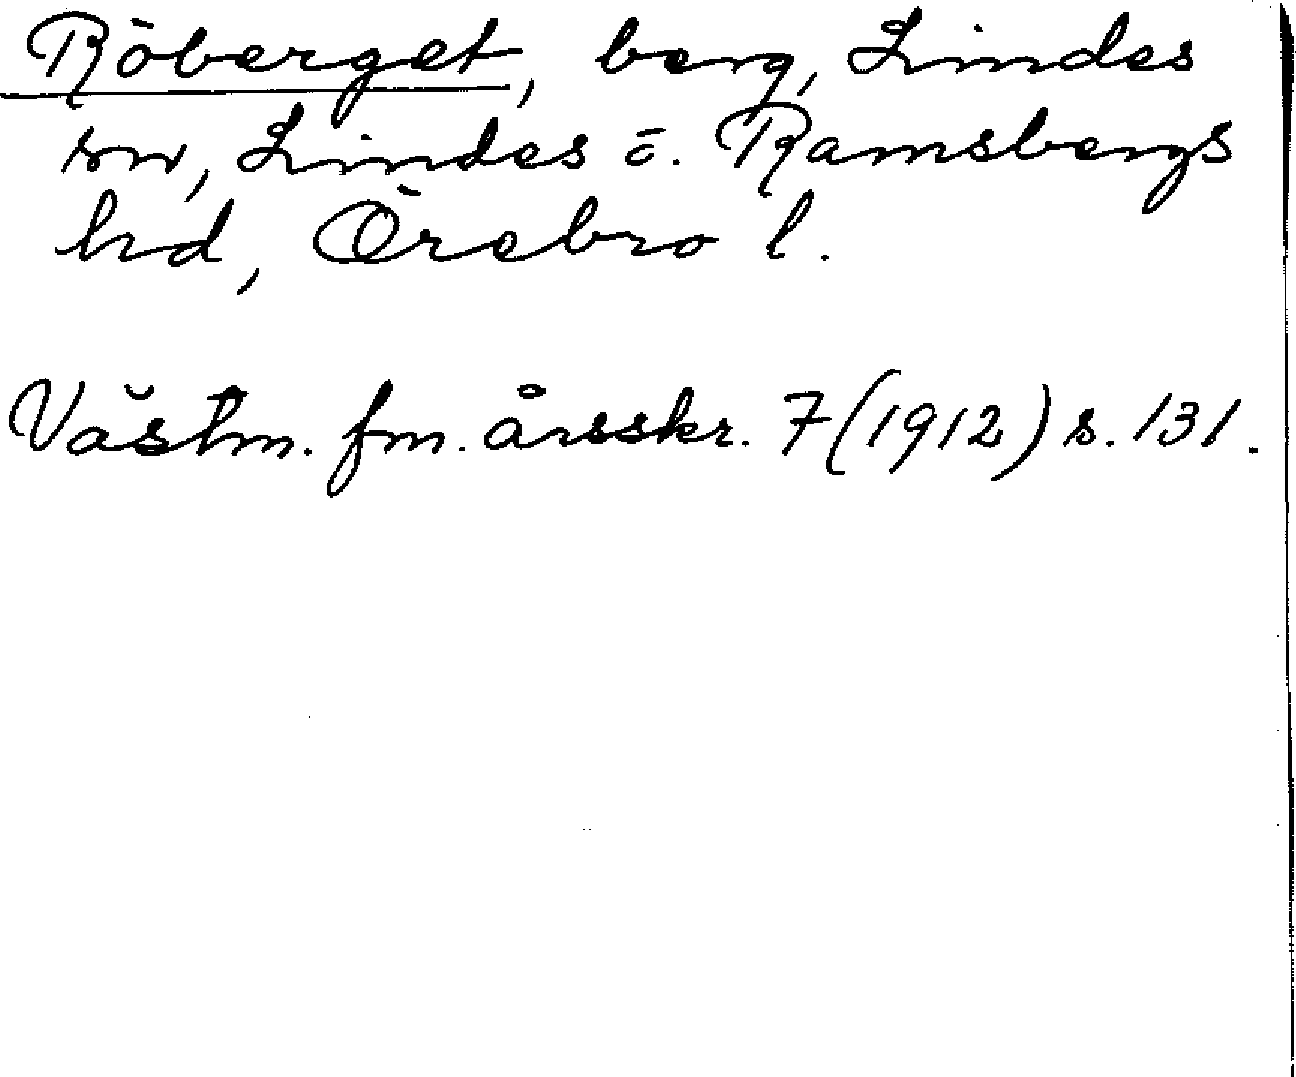 Röberget, berg, Lindes
sn, Lindes ö. Ramsbergs
hd, Örebro l.
Västm. fm. årsskr. 7 (1912) s. 131.